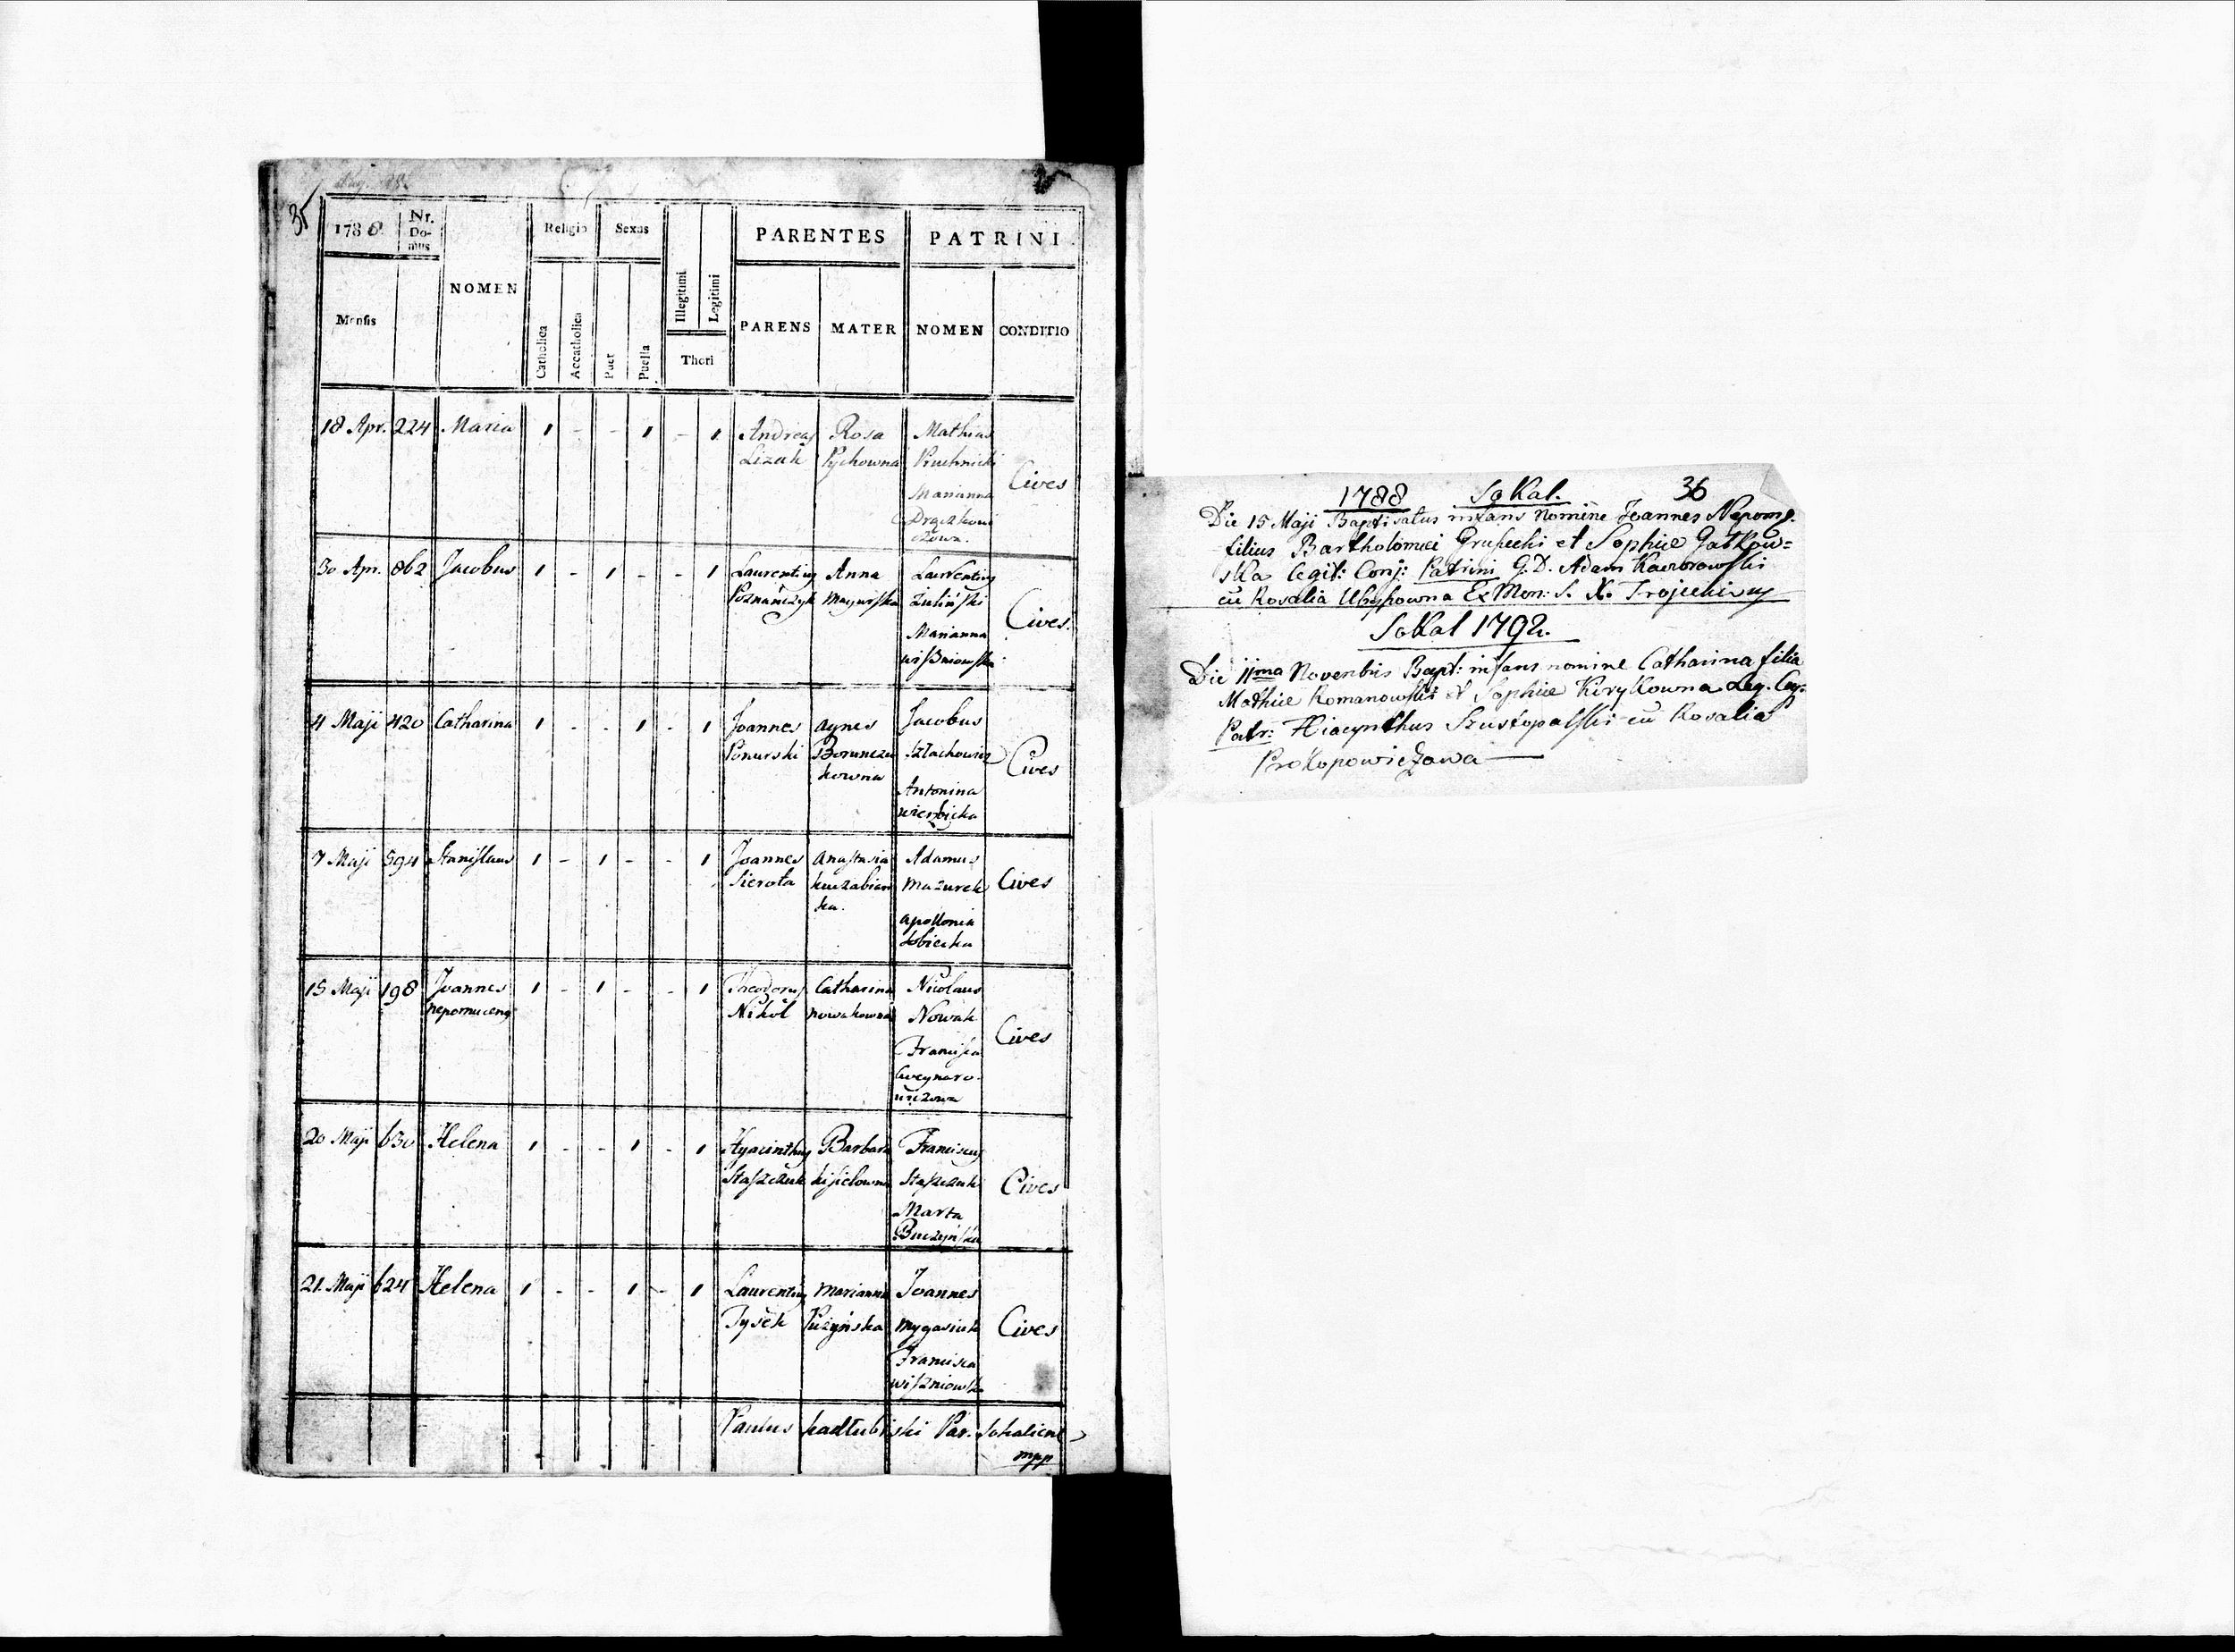 35
1788 Nr. Do- mus NOMEN Religio Sexus Illegitimi Legitimi PARENTES PATRINI
Mensis Catholica Accatholica Puer Puella Thori PARENS MATER NOMEN CONDITIO
18 Apr. 224 Maria 1 - - 1 - 1 Andreas Rosa Mathias
Lizak Pychowna
Marianna Cives
30 Apr. 862 Jacobus 1 - 1 - - 1 Laurentius Anna Laurentius
Poznańczyk Żuliński
Marianna Cives.
wißniowska
4 Maji 420 Catharina 1 - - 1 - 1 Joannes Agnes Jacobus
Ponurski Szlachowicz
kowna Cives
Antonina
wierbicka
7 Maji 594 Stanislaus 1 - 1 - - 1 Joannes Anastasia Adamus
Sierota Mazurek Cives
ka.
Apollonia
15 Maji 198 Joannes 1 - 1 - - 1 Theodorus Catharina Nicolaus
nepomucenus Nikol nowakowna Nowak
Francisca Cives
20 Maji 630 Helena 1 - - 1 - 1 Hyacinthus Barbara Franciscus
Staszczuk kisielowna Staszczuk Cives
Marta
Buczyńska
21. Maji 624 Helena 1 - - 1 - 1 Laurentius Marianna Joannes
Tysek Cives
Francisca
wiszniowska
Paulus kadłubiski Par. Sokaliens
mpp
1788 Sokal. 36
Die 15 Maji Baptisatus infans Nomine Joannes Nepom.
filius Bartholomæi Grupecki et Sophiæ Gatkow=
ska legit: Conj: Patrini G. D. Adam
cũ Rosalia Ex Mon: S. X.
Sokal 1792.
Die 11ma Novembris Bapt: infans nomine Catharina filia
Mathiæ Romanowski et Sophiæ Kirykowna Leg. Coj.
Patr: Hiacynthus Szustopalski cũ Rosalia
Prokopowiczowa